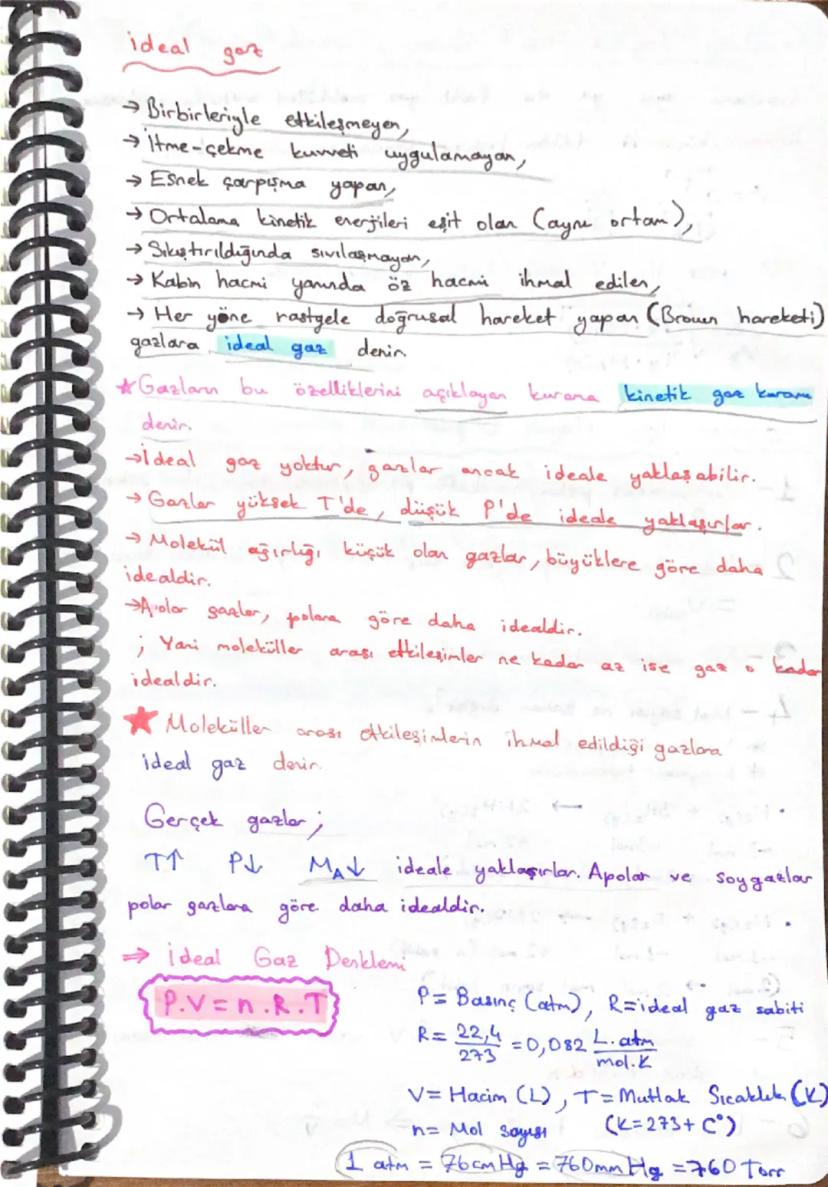 ideal gaz
→ Birbirleriyle etkileşmeyen,
→ İtme-çekme kuvveti uygulamayan,
→ Esnek çarpışma yapan,
→ Ortalama kinetik enerjileri eşit olan (aynı ortam),
→ Sıkıştırıldığında sıvılaşmayan,
→ Kabın hacmi yanında öz hacmi ihmal edilen,
→ Her yöne rastgele doğrusal hareket yapan (Brown hareketi)
gazlara ideal gaz denir.
★ Gazların bu özelliklerini açıklayan kurama kinetik gaz kuramı
denir.
→ İdeal gaz yoktur, gazlar ancak ideale yaklaşabilir.
→ Gazlar yüksek T'de, düşük P'de ideale yaklaşırlar.
→ Molekül ağırlığı küçük olan gazlar, büyüklere göre daha
idealdir.
→ Apolar gazlar, polara göre daha idealdir.
; Yani moleküller arası etkileşimler ne kadar az ise gaz o kadar
idealdir.
★ Moleküller arası etkileşimlerin ihmal edildiği gazlara
ideal gaz denir.
Gerçek gazlar;
T↑ P↓ MA↓ ideale yaklaşırlar. Apolar ve soygazlar
polar gazlara göre daha idealdir.
⇒ İdeal Gaz Denklemi
P.V = n.R.T
P = Basınç (atm), R = ideal gaz sabiti
R = 22,4/273 = 0,082 L.atm/mol.K
V = Hacim (L), T = Mutlak Sıcaklık (K)
n = Mol sayısı (K = 273 + C°)
1 atm = 76 cm Hg = 760 mm Hg = 760 Torr